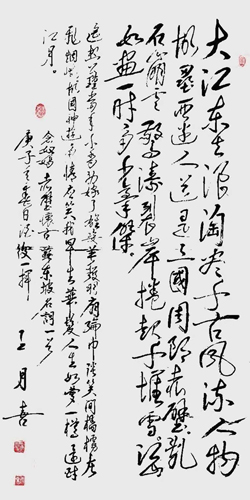 大江东去浪淘尽千古风流人物
故垒西边人道是三國周郎赤壁乱
石崩云惊涛裂岸捲起千堆雪江山
如画一时多少豪傑
遥想公瑾当年小乔初嫁了雄姿英發羽扇纶巾谈笑间樯橹灰
飛烟灭故国神遊多情应笑我早生华髮人生如梦一樽还酹
江月
念奴娇赤壁怀古苏东坡词一首
庚子年春日
王月喜